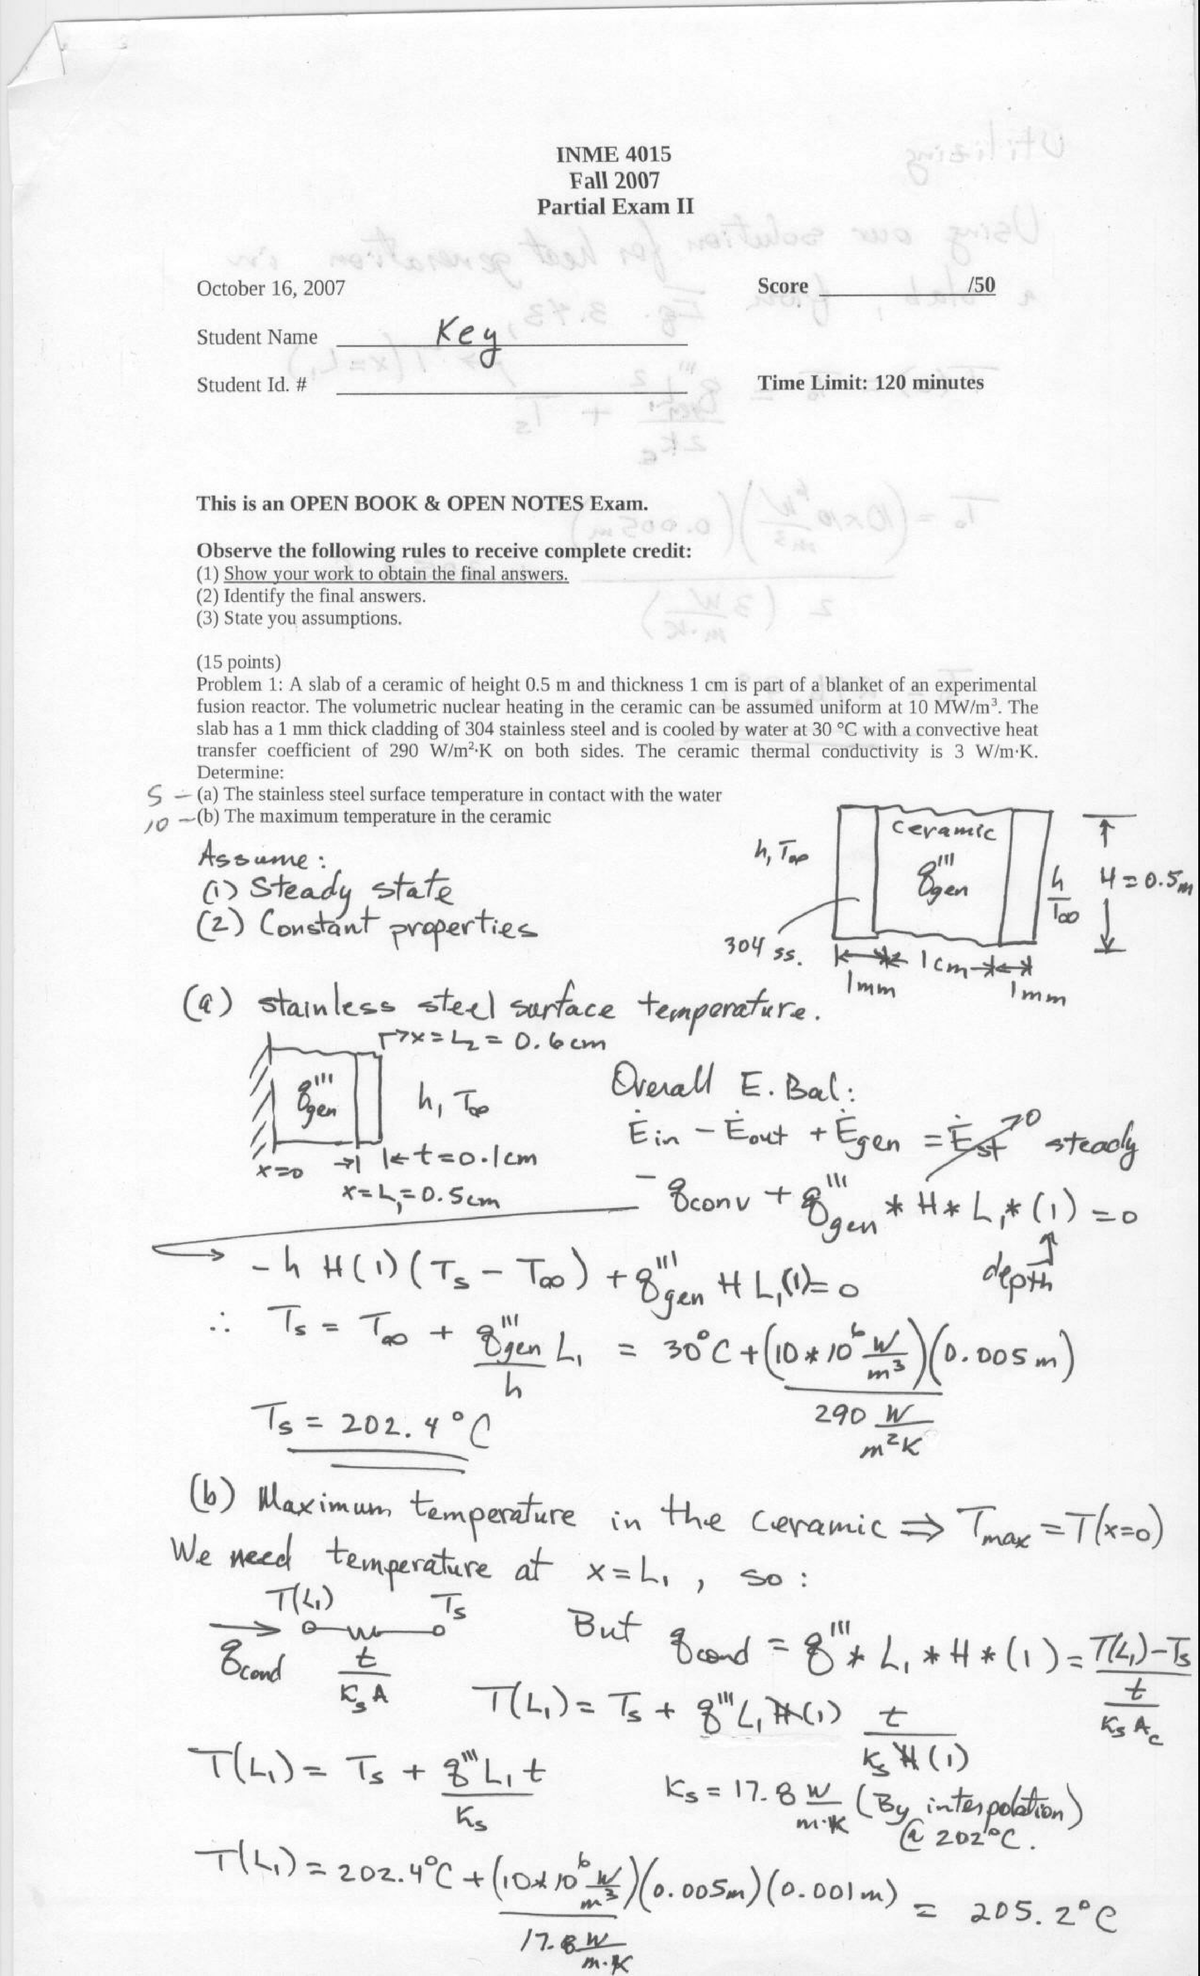 INME 4015
Fall 2007
Partial Exam II
October 16, 2007 Score /50
Student Name Key
Student Id. # Time Limit: 120 minutes
This is an OPEN BOOK & OPEN NOTES Exam.
Observe the following rules to receive complete credit:
(1) Show your work to obtain the final answers.
(2) Identify the final answers.
(3) State you assumptions.
(15 points)
Problem 1: A slab of a ceramic of height 0.5 m and thickness 1 cm is part of a blanket of an experimental
fusion reactor. The volumetric nuclear heating in the ceramic can be assumed uniform at 10 MW/m³. The
slab has a 1 mm thick cladding of 304 stainless steel and is cooled by water at 30 °C with a convective heat
transfer coefficient of 290 W/m²·K on both sides. The ceramic thermal conductivity is 3 W/m·K.
Determine:
5 – (a) The stainless steel surface temperature in contact with the water
10 – (b) The maximum temperature in the ceramic
Assume:
(1) Steady state
(2) Constant properties
ceramic
h, T∞
q'''gen
h
T∞
H = 0.5m
304 ss.
1mm
1cm
1mm
(a) stainless steel surface temperature.
x = L2 = 0.6cm
q'''gen
h, T∞
x=0
t=0.1cm
x=L1=0.5cm
Overall E. Bal:
Ėin − Ėout + Ėgen = Ėst 0 steady
− qconv + q'''gen * H * L1 * (1) = 0
depth
− h H(1)(Ts − T∞) + q'''gen H L1(1) = 0
∴ Ts = T∞ + q'''gen L1 / h = 30°C + (10*10⁶ W/m³)(0.005m) / 290 W/m²K
Ts = 202.4°C
(b) Maximum temperature in the ceramic ⇒ Tmax = T(x=0)
We need temperature at x=L1, so:
T(L1) Ts
qcond t/KsA
But qcond = q''' * L1 * H * (1) = T(L1)−Ts / t/KsAc
T(L1) = Ts + q'''L1H(1) t/KsH(1)
T(L1) = Ts + q'''L1t / Ks
Ks = 17.8 W/m·K (By interpolation)
@ 202°C.
T(L1) = 202.4°C + (10*10⁶ W/m³)(0.005m)(0.001m) / 17.8 W/m·K = 205.2°C